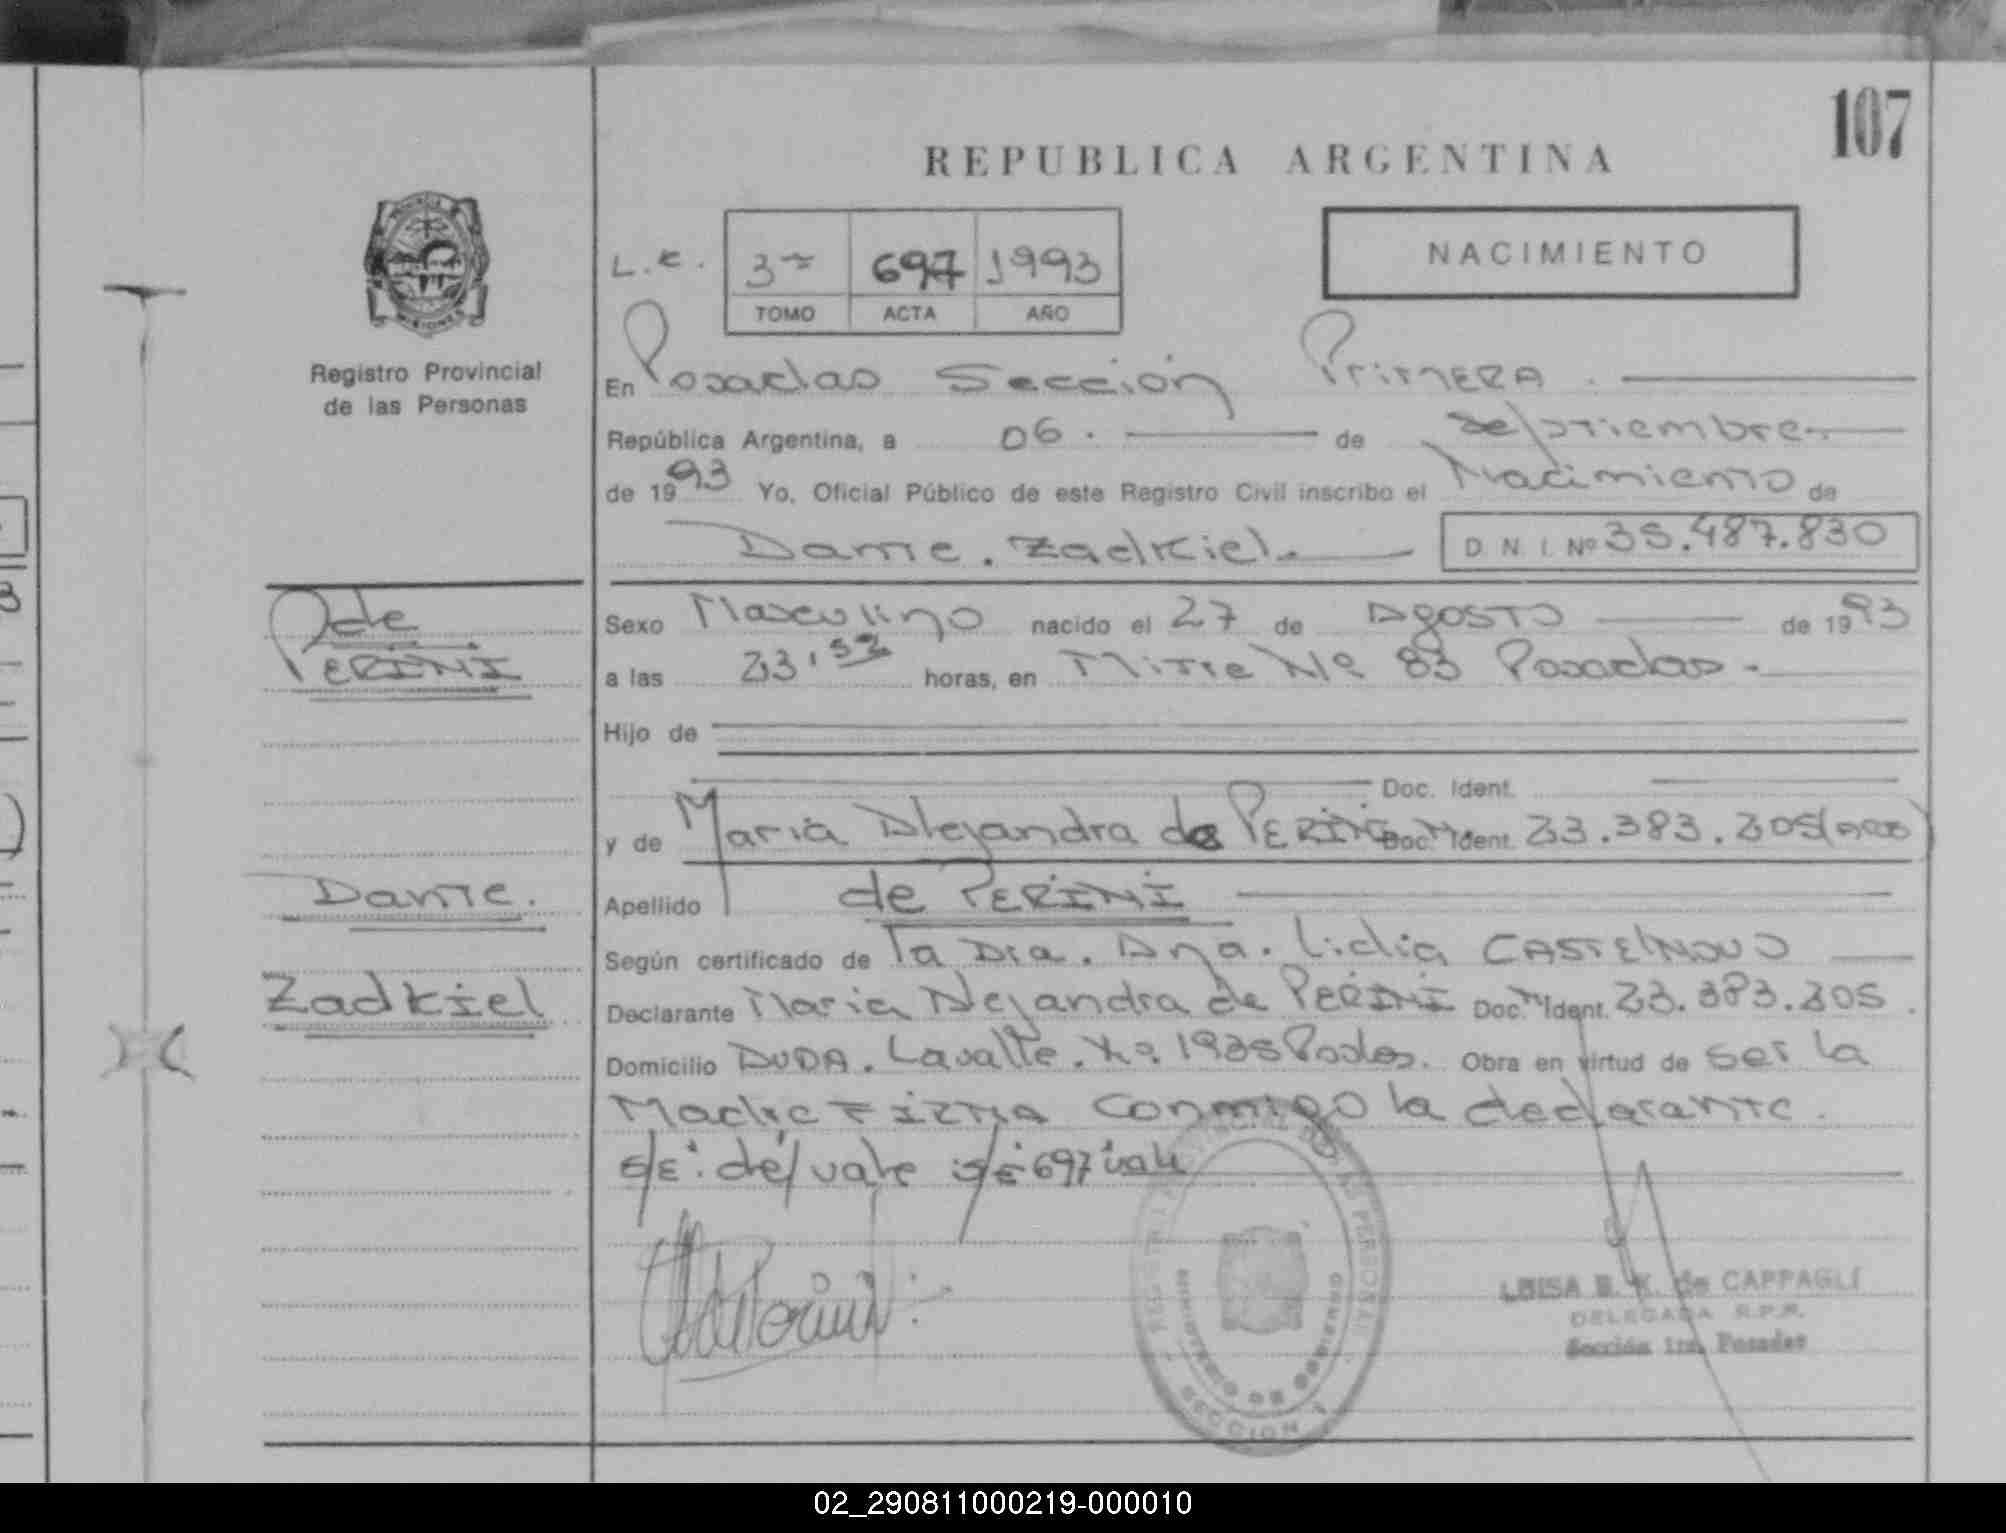 107
REPUBLICA ARGENTINA
NACIMIENTO
3 697 1993
TOMO ACTA AÑO
PROVINCIA DE
MISIONES
Registro Provincial
de las Personas
En Posadas Sección Primera.
República Argentina, a 06. de septiembre.
de 1993 Yo, Oficial Público de este Registro Civil inscribo el Nacimiento de
Dante. Zadkiel. D. N. I. Nº 35.487.830
de
PERINI
Sexo Masculino nacido el 27 de Agosto de 1993
a las 23,52 horas, en Mitre Nº 83 Posadas.
Hijo de
Doc. Ident.
y de Maria Alejandra de PERINI Doc. Ident. 23.383.205
Dante.
Zadkiel
Apellido de PERINI
Según certificado de la Dra. Ana. Lidia CASTELNOVO
Declarante Maria Alejandra de PERINI Doc. Ident. 23.383.205.
Domicilio AVDA. Lavalle. Nº 1935 Posdas. Obra en virtud de ser la
Madre FIRMA conmigo la declarante.
S/E. de/ vale S/E 697 vale
REGISTRO PROVINCIAL DE LAS PERSONAS
MINISTERIO DE GOBIERNO
SECCION 1
LUISA B. K. de CAPPAGLI
DELEGADA R.P.P.
Sección 1ra. Posadas
02_290811000219-000010